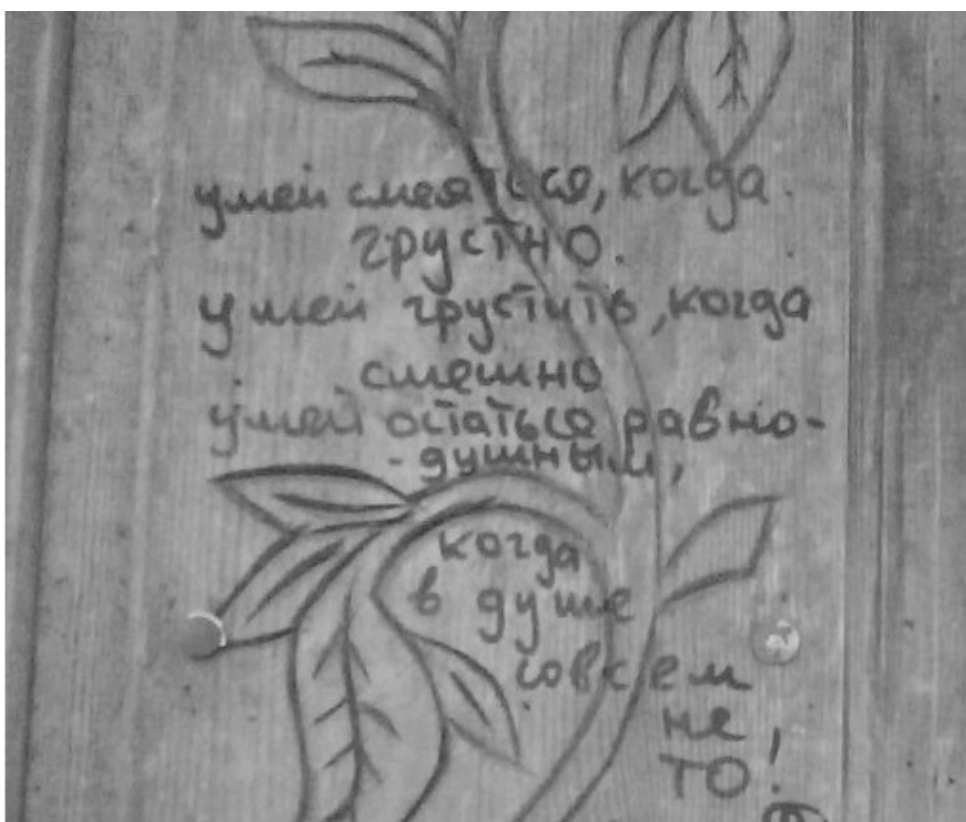 умей смеяться, когда
грустно.
умей грустить, когда
смешно
умей остаться равно-
-душным,
когда
в душе
совсем
не
то!